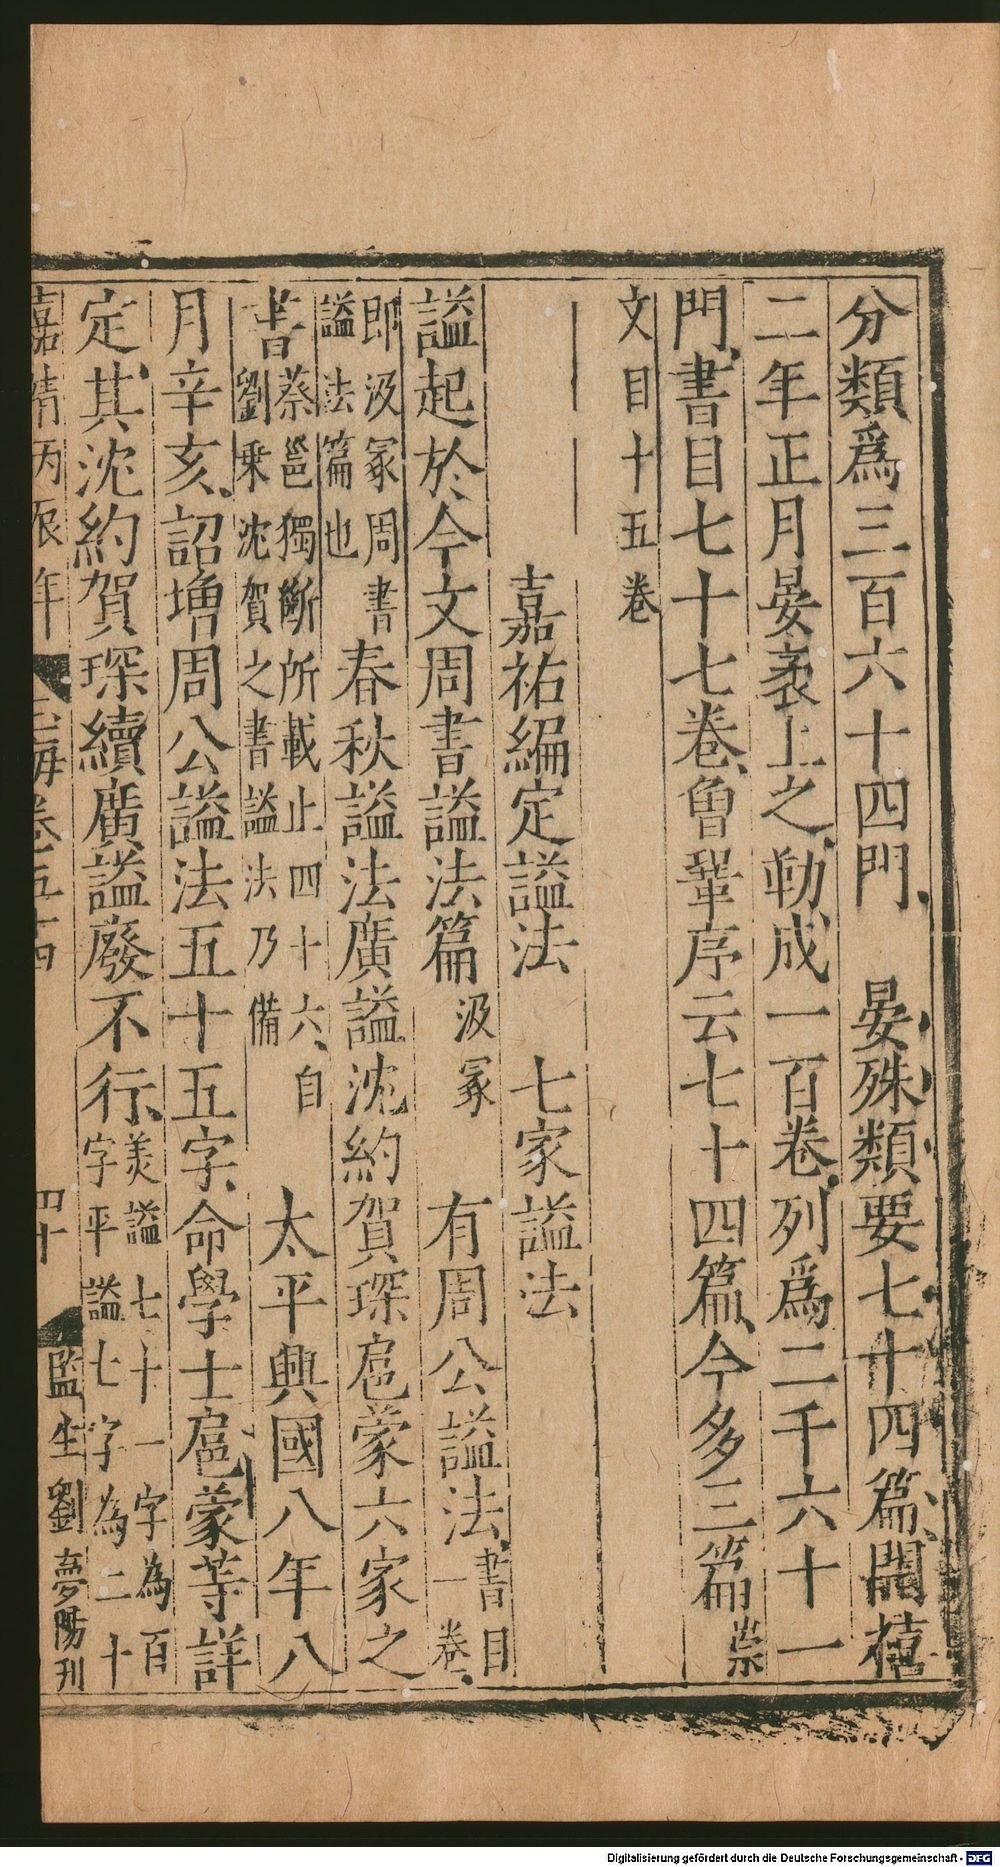 分類爲三百六十四門、　晏殊類要七十四篇、開禧
二年正月晏袤上之、勒成一百卷、列爲二千六十一
門、書目七十七卷、魯鞏序云七十四篇、今多三篇崇
文目十五卷
嘉祐編定謚法　七家謚法
謚起於今文周書謚法篇汲冢　有周公謚法、書目一卷、
即汲冢周書謚法篇也　春秋謚法廣謚沈約賀琛扈蒙六家之
書蔡邕獨斷所載止四十六、自劉乗沈賀之書謚法乃備　太平興國八年八
月辛亥、詔增周公謚法五十五字、命學士扈蒙等詳
定、其沈約賀琛續廣謚廢不行、美謚七十一字為百字平謚七字為二十
嘉靖丙辰年　玉海卷五十四　四十　監生劉夢陽刊
Digitalisierung gefördert durch die Deutsche Forschungsgemeinschaft - DFG